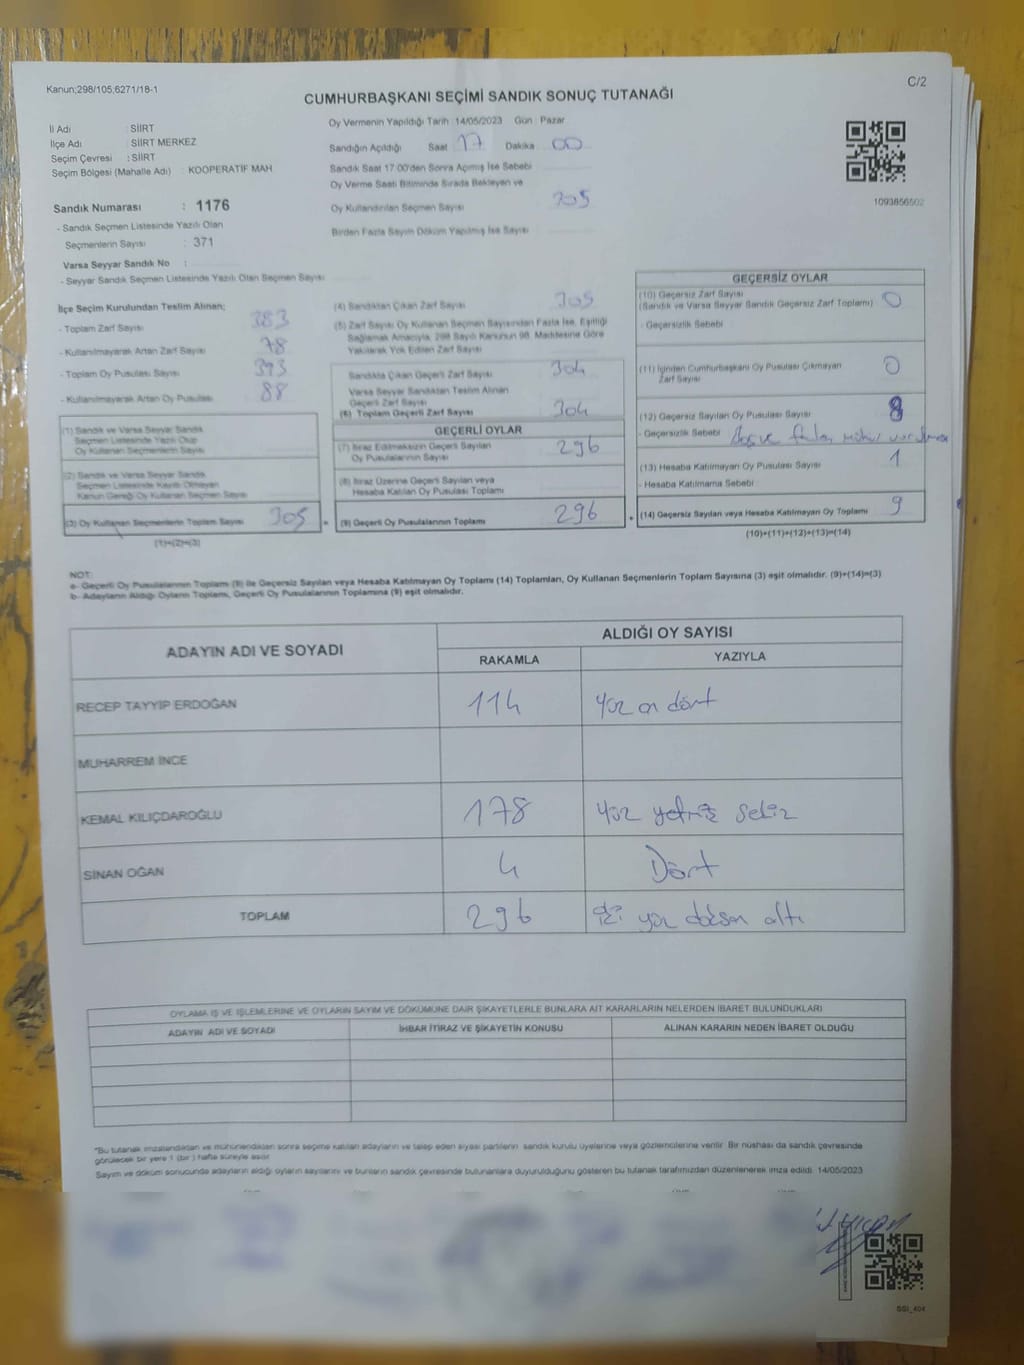 Kanun;298/105,6271/18-1
C/2
CUMHURBAŞKANI SEÇİMİ SANDIK SONUÇ TUTANAĞI
İl Adı : SİİRT
İlçe Adı : SİİRT MERKEZ
Seçim Çevresi : SİİRT
Seçim Bölgesi (Mahalle Adı) : KOOPERATİF MAH
Sandık Numarası : 1176
- Sandık Seçmen Listesinde Yazılı Olan
Seçmenlerin Sayısı : 371
Varsa Seyyar Sandık No :
- Seyyar Sandık Seçmen Listesinde Yazılı Olan Seçmen Sayısı
Oy Vermenin Yapıldığı Tarih : 14/05/2023 Gün : Pazar
Sandığın Açıldığı Saat 17 Dakika 00
Sandık Saat 17:00'den Sonra Açılmış İse Sebebi
Oy Verme Saati Bitiminde Sırada Bekleyen ve
Oy Kullandırılan Seçmen Sayısı 305
Birden Fazla Sayım Döküm Yapılmış İse Sayısı
1093856502
İlçe Seçim Kurulundan Teslim Alınan;
- Toplam Zarf Sayısı 383
- Kullanılmayarak Artan Zarf Sayısı 78
- Toplam Oy Pusulası Sayısı 393
- Kullanılmayarak Artan Oy Pusulası 88
(1) Sandık ve Varsa Seyyar Sandık
Seçmen Listesinde Yazılı Olup
Oy Kullanan Seçmenlerin Sayısı
(2) Sandık ve Varsa Seyyar Sandık
Seçmen Listesinde Kayıtlı Olmayan
Kanun Gereği Oy Kullanan Seçmen Sayısı
(3) Oy Kullanan Seçmenlerin Toplam Sayısı 305 =
(1)+(2)=(3)
(4) Sandıktan Çıkan Zarf Sayısı 305
(5) Zarf Sayısı Oy Kullanan Seçmen Sayısından Fazla İse, Eşitliği
Sağlamak Amacıyla, 298 Sayılı Kanunun 98. Maddesine Göre
Yakılarak Yok Edilen Zarf Sayısı
Sandıkta Çıkan Geçerli Zarf Sayısı 304
Varsa Seyyar Sandıktan Teslim Alınan
Geçerli Zarf Sayısı
(6) Toplam Geçerli Zarf Sayısı 304
GEÇERLİ OYLAR
(7) İtiraz Edilmeksizin Geçerli Sayılan
Oy Pusulalarının Sayısı 296
(8) İtiraz Üzerine Geçerli Sayılan veya
Hesaba Katılan Oy Pusulası Toplamı
(9) Geçerli Oy Pusulalarının Toplamı 296 +
GEÇERSİZ OYLAR
(10) Geçersiz Zarf Sayısı
(Sandık ve Varsa Seyyar Sandık Geçersiz Zarf Toplamı) 0
- Geçersizlik Sebebi
(11) İçinden Cumhurbaşkanı Oy Pusulası Çıkmayan
Zarf Sayısı 0
(12) Geçersiz Sayılan Oy Pusulası Sayısı 8
- Geçersizlik Sebebi
(13) Hesaba Katılmayan Oy Pusulası Sayısı 1
- Hesaba Katılmama Sebebi
(14) Geçersiz Sayılan veya Hesaba Katılmayan Oy Toplamı 9
(10)+(11)+(12)+(13)=(14)
NOT:
a- Geçerli Oy Pusulalarının Toplamı (9) ile Geçersiz Sayılan veya Hesaba Katılmayan Oy Toplamı (14) Toplamları, Oy Kullanan Seçmenlerin Toplam Sayısına (3) eşit olmalıdır. (9)+(14)=(3)
b- Adayların Aldığı Oyların Toplamı, Geçerli Oy Pusulalarının Toplamına (9) eşit olmalıdır.
ADAYIN ADI VE SOYADI
ALDIĞI OY SAYISI
RAKAMLA YAZIYLA
RECEP TAYYİP ERDOĞAN 114 Yüz on dört
MUHARREM İNCE
KEMAL KILIÇDAROĞLU 178 Yüz yetmiş sekiz
SİNAN OĞAN 4 Dört
TOPLAM 296 iki yüz doksan altı
OYLAMA İŞ VE İŞLEMLERİNE VE OYLARIN SAYIM VE DÖKÜMÜNE DAİR ŞİKAYETLERLE BUNLARA AİT KARARLARIN NELERDEN İBARET BULUNDUKLARI
ADAYIN ADI VE SOYADI İHBAR İTİRAZ VE ŞİKAYETİN KONUSU ALINAN KARARIN NEDEN İBARET OLDUĞU
*Bu tutanak imzalandıktan ve mühürlendikten sonra seçime katılan adayların ve talep eden siyasi partilerin sandık kurulu üyelerine veya gözlemcilerine verilir. Bir nüshası da sandık çevresinde
görülecek bir yere 1 (bir) hafta süreyle asılır.
Sayım ve döküm sonucunda adayların aldığı oyların sayılarını ve bunların sandık çevresinde bulunanlara duyurulduğunu gösteren bu tutanak tarafımızdan düzenlenerek imza edildi. 14/05/2023
SSI_404